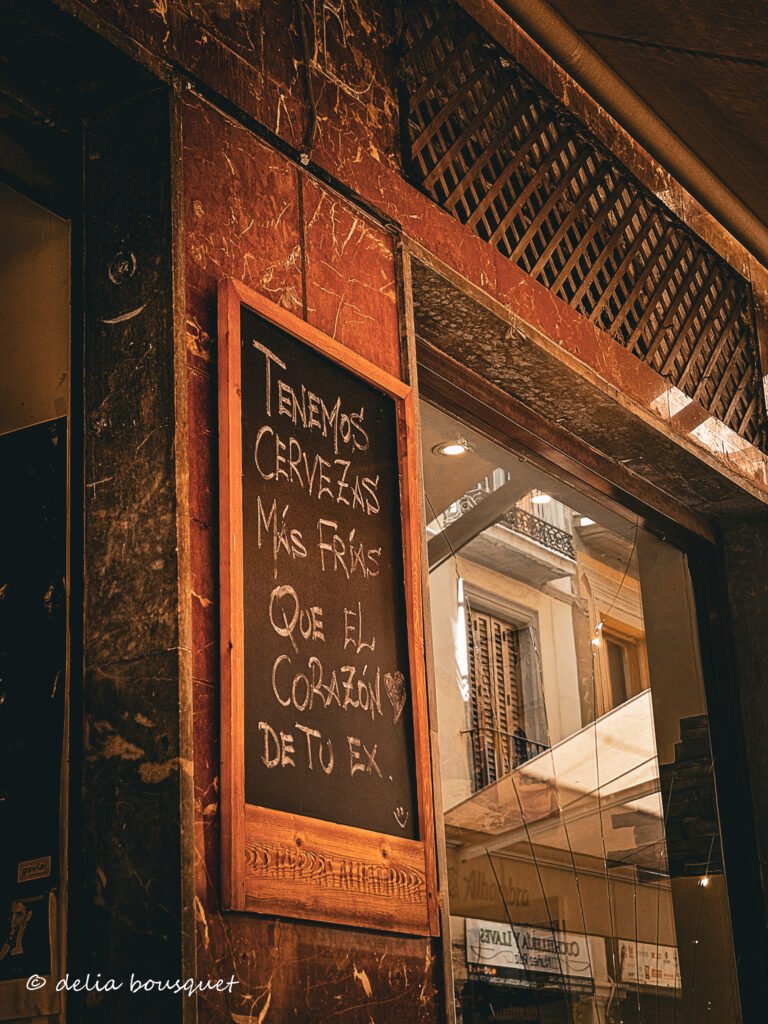 TENEMOS
CERVEZAS
MÁS FRÍAS
QUE EL
CORAZÓN
DE TU EX.
CUCHILLERÍA Y LLAVES
© delia bousquet